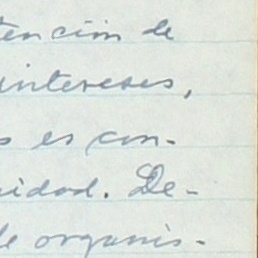 tención de
intereses,
s es con-
idad. De-
de organis-